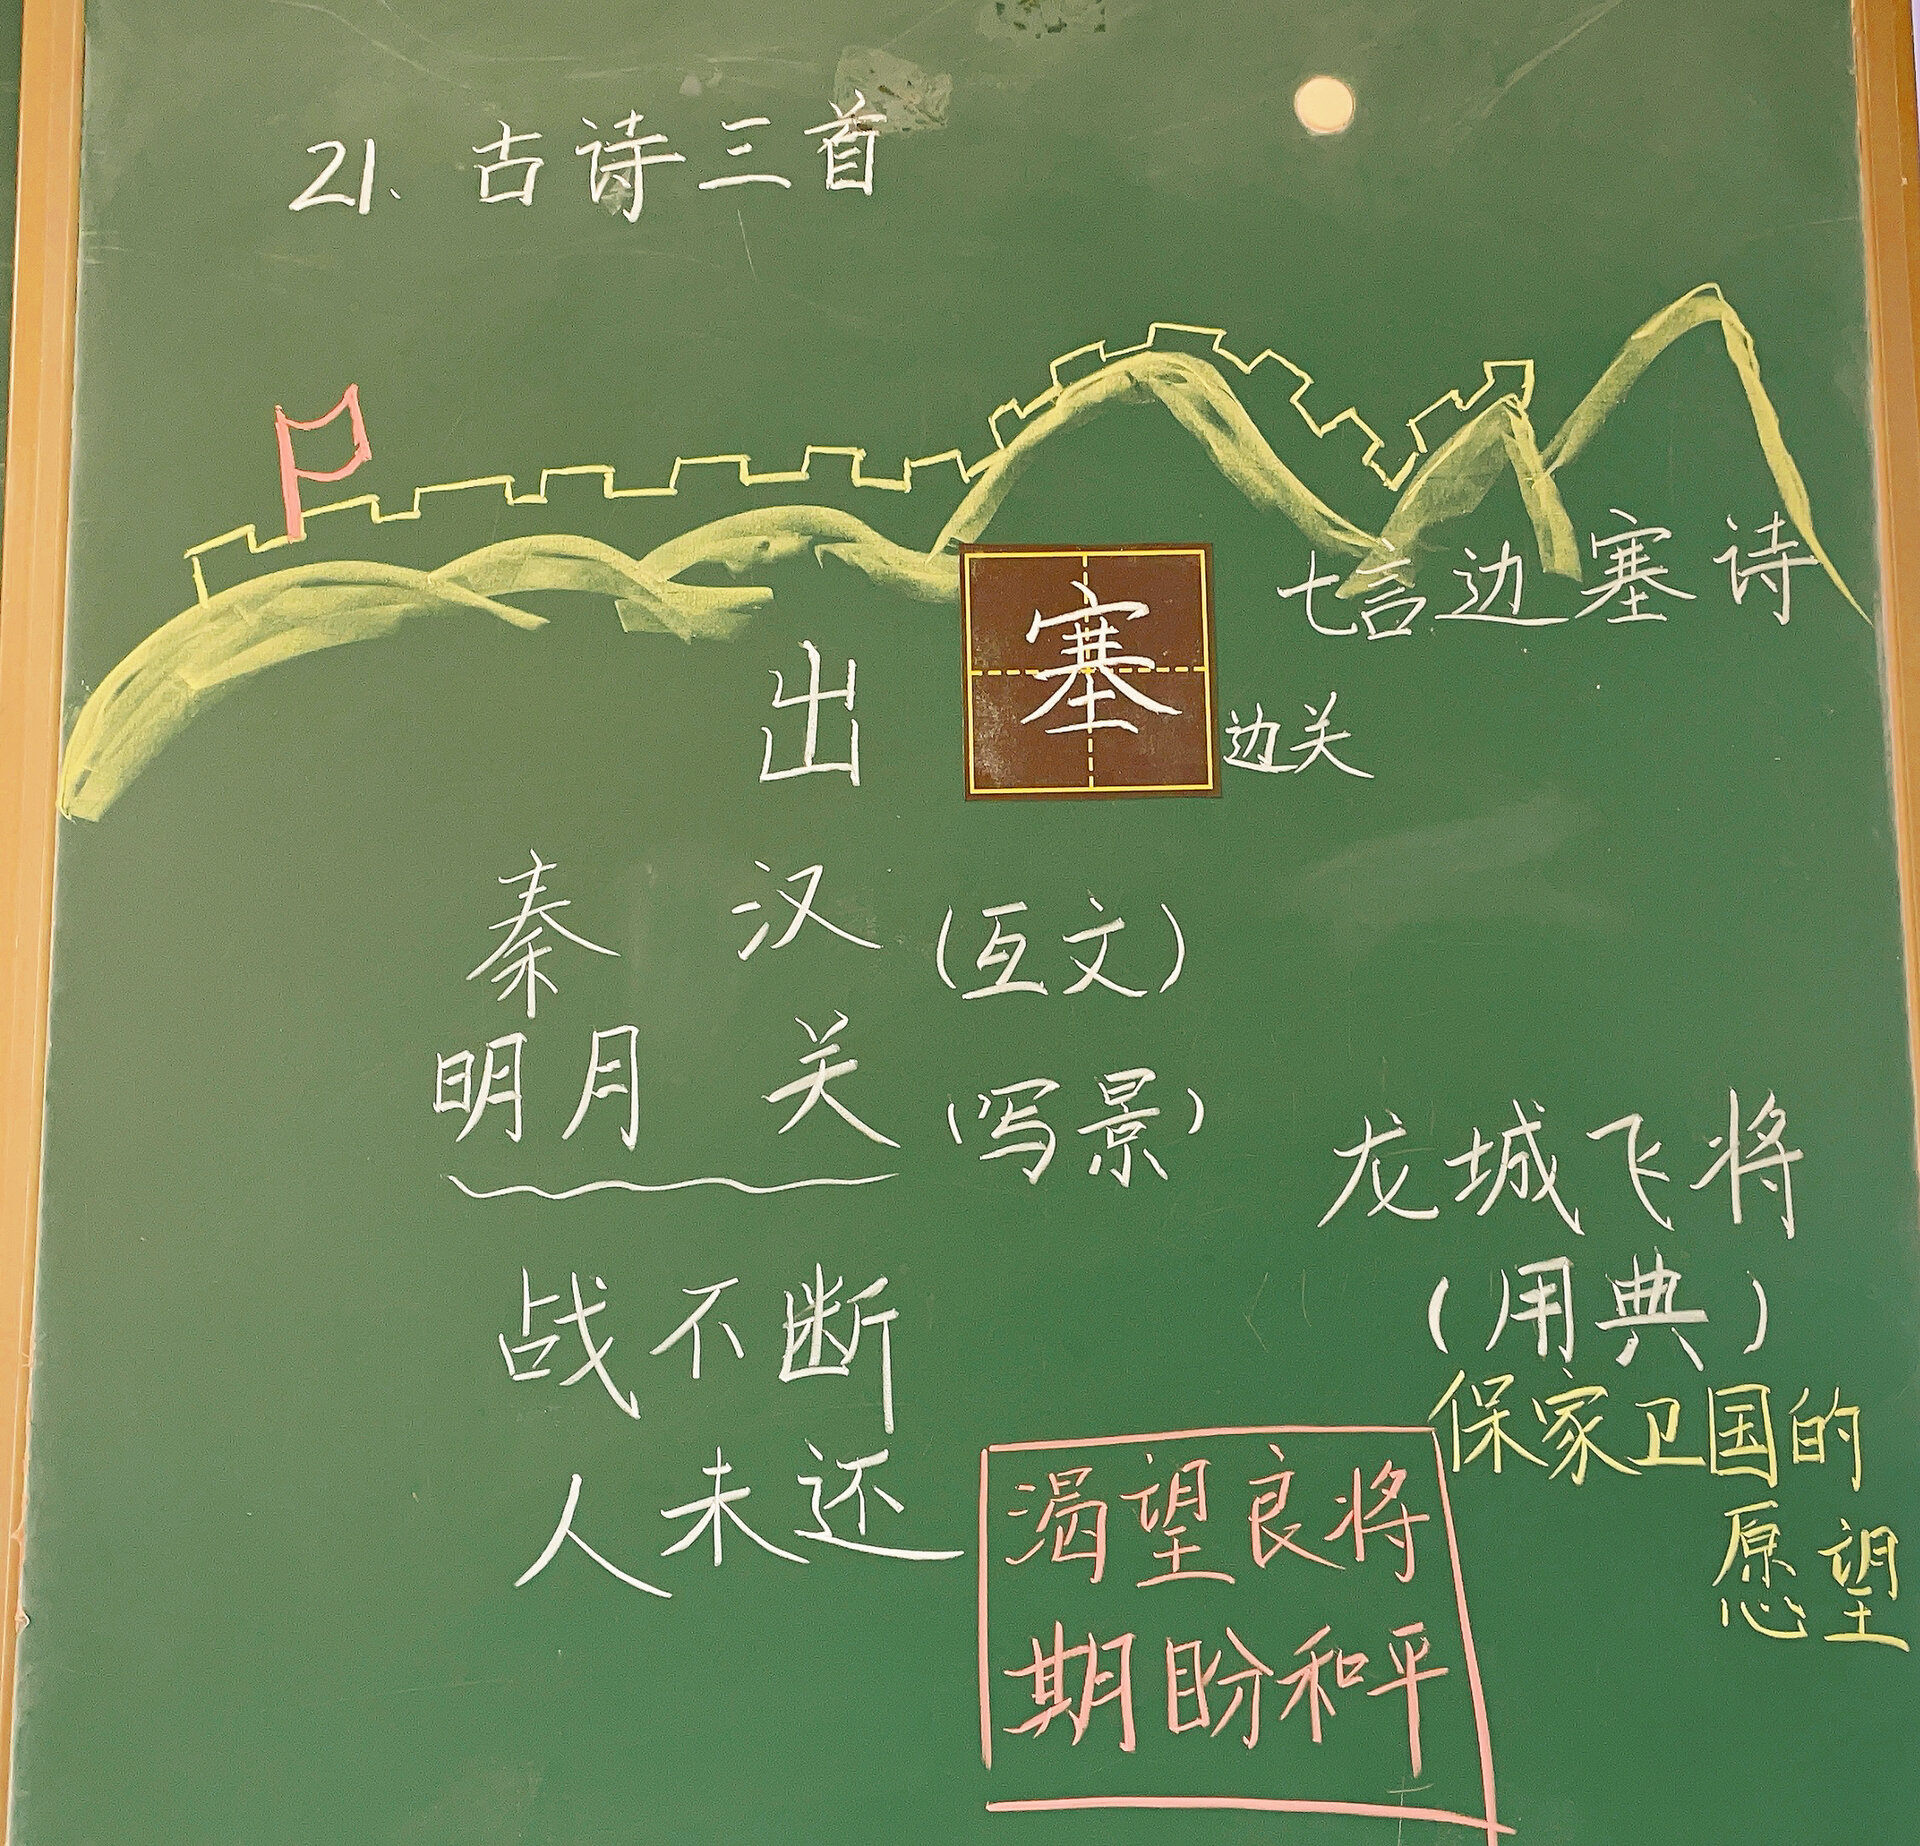 21. 古诗三首
七言边塞诗
出塞 边关
秦 汉 (互文)
明月 关 (写景)
龙城飞将
(用典)
战不断
保家卫国的
愿望
人未还
渴望良将
期盼和平